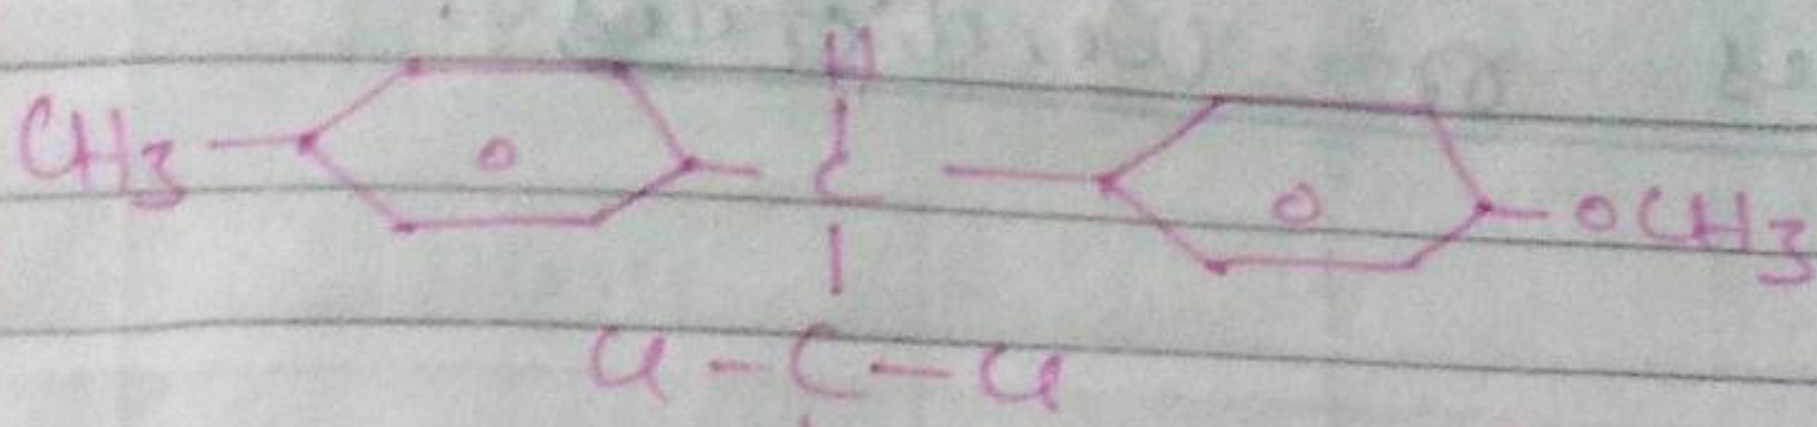 H
CH3 C OCH3
Cl - C - Cl